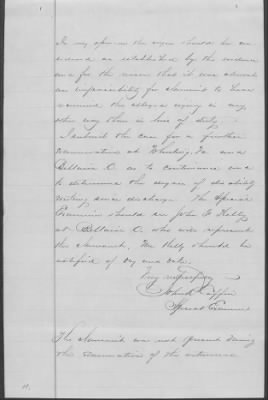 In my opinion the origin should be con
sidered as established by the evidence
and for the reason that it was almost
an impossibility for claimant to have
received the alleged injury in any
other way than in line of duty.
I submit the case for a further
examination at Wheeling, Va. and
Bellaire O. as to continuance and
to determine the degree of disability
existing since discharge. The Special
Examiner should see John F. Kelly
at Bellaire O. who will represent
the claimant. Mr Kelly should be
notified of day and date.
Very respectfully
Special Examiner
The claimant was not present during
the examination of the witnesses